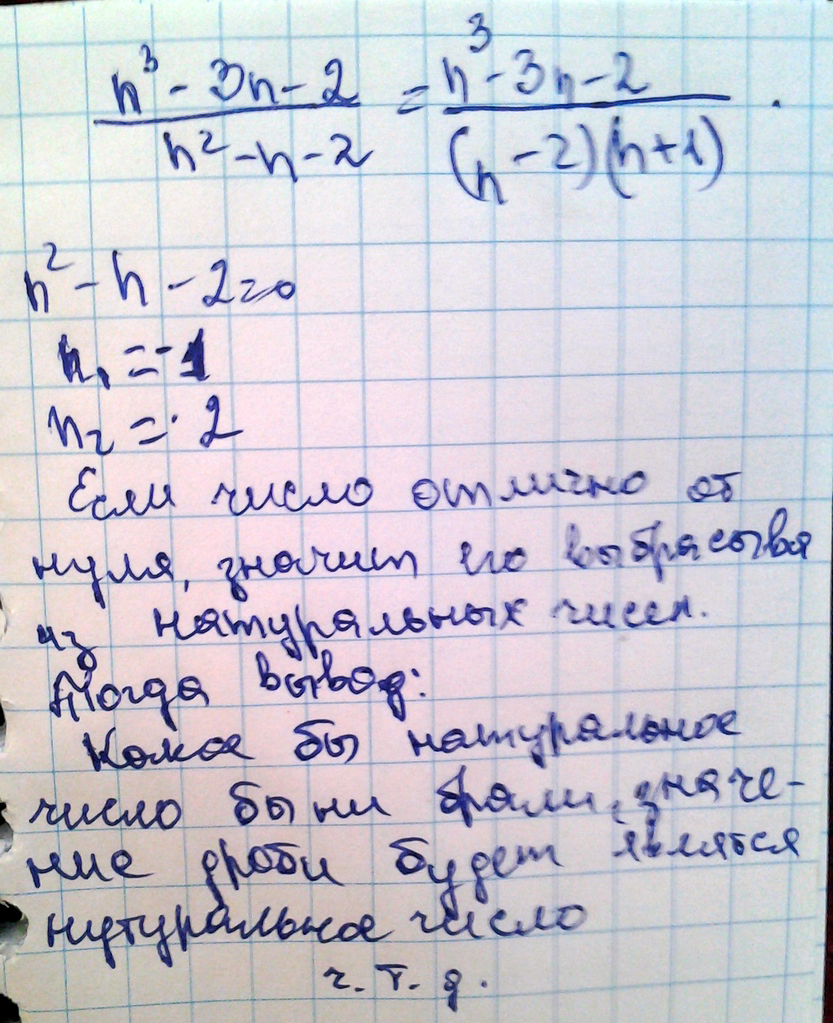 n³ - 3n - 2 / n² - n - 2 = n³ - 3n - 2 / (n - 2)(n + 1) .
n² - n - 2 = 0
n₁ = -1
n₂ = 2
Если число отлично от
нуля, значит его выбрасывая
из натуральных чисел.
Тогда вывод:
Какое бы натуральное
число бы ни брали, значе-
ние дроби будет являтся
нутуральное число
ч. т. д.